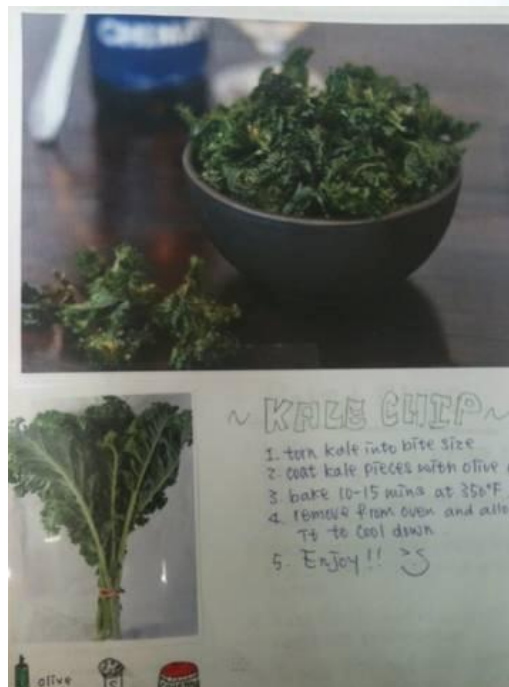 ~ KALE CHIP ~
1. torn kale into bite size
2. coat kale pieces with olive
3. bake 10-15 mins at 350°F
4. remove from oven and allo
It to cool down
5. Enjoy!!
olive